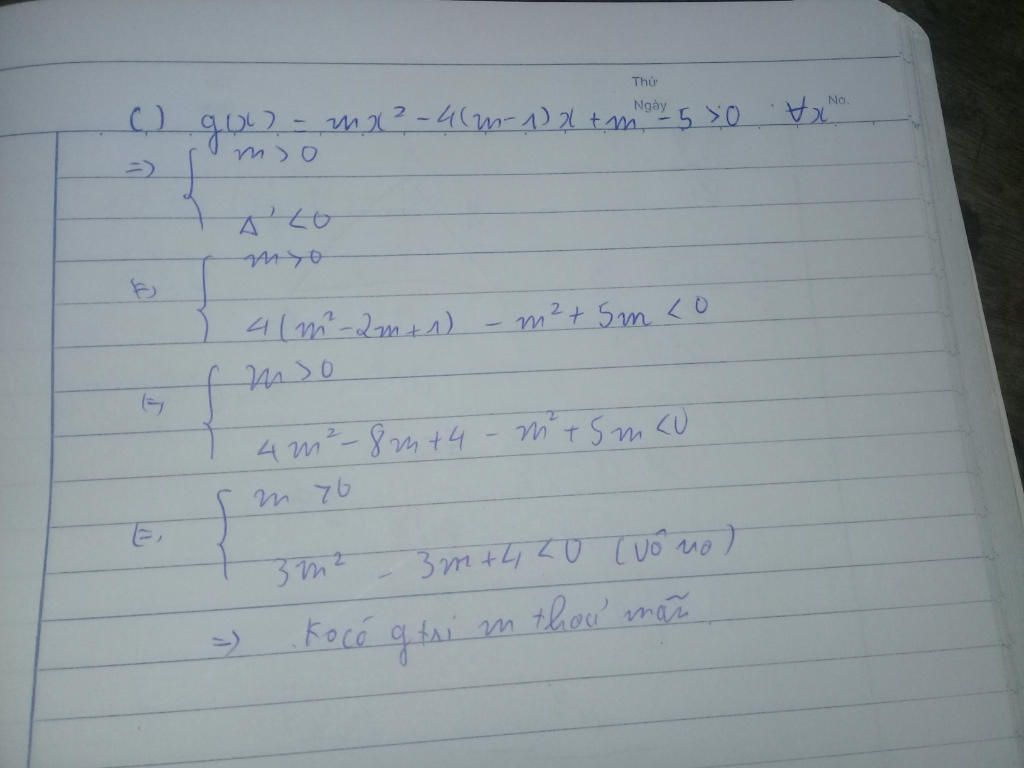 Thứ
Ngày
No.
c) g(x) = mx² - 4(m-1)x + m - 5 > 0 ∀x
=> { m > 0
Δ' < 0
<=> { m > 0
4(m² - 2m + 1) - m² + 5m < 0
<=> { m > 0
4m² - 8m + 4 - m² + 5m < 0
<=> { m > 0
3m² - 3m + 4 < 0 (vô no)
=> Ko có g trị m thoả mãn